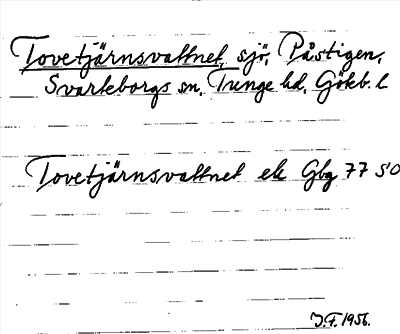 Tovetjärnsvattnet, sjö, Påstigen,
Svarteborgs sn, Tunge hd, Gökb. l
Tovetjärnsvattnet ek Gbg 77 SO
J.F. 1956.